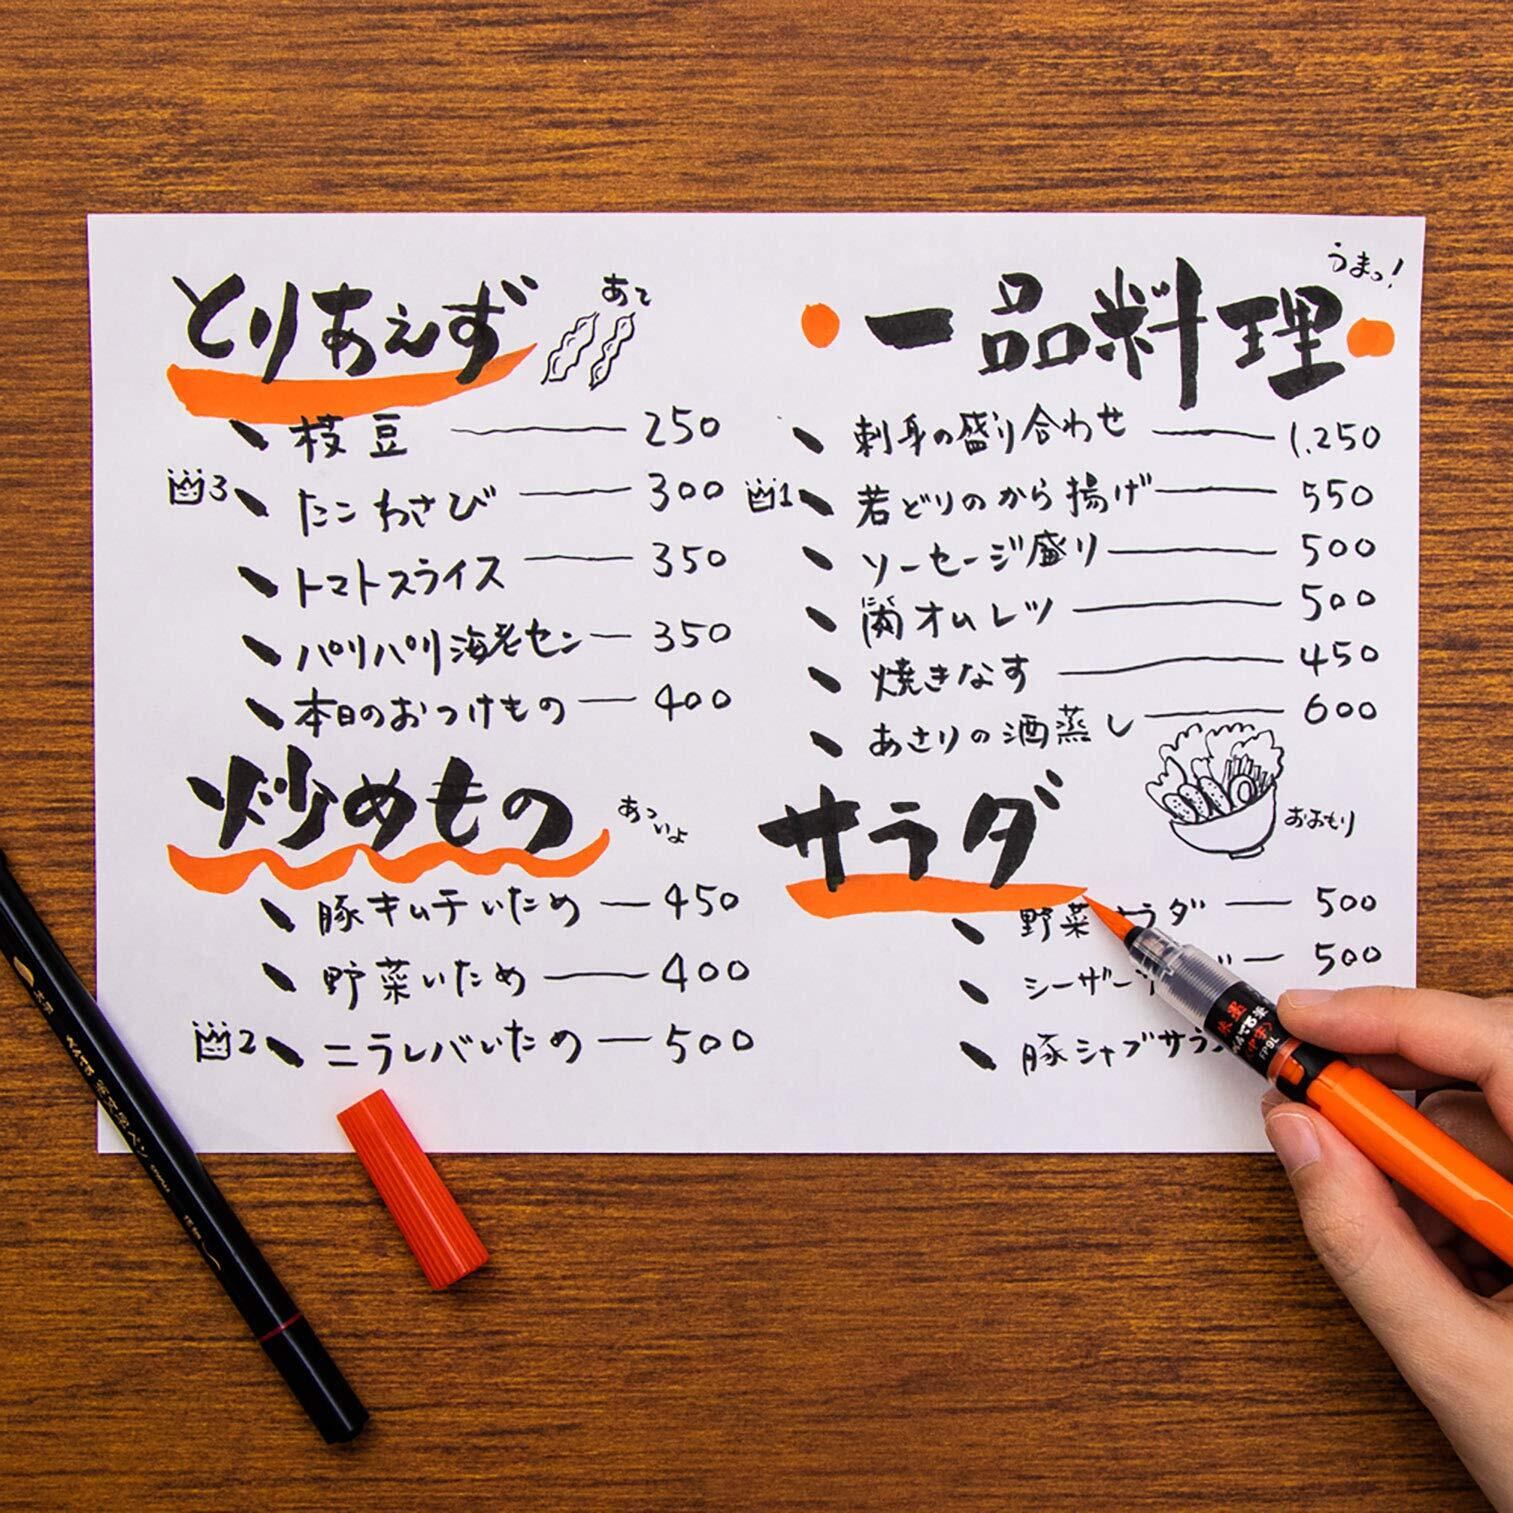 とりあえず
あて
枝豆 250
3 たこわさび 300
トマトスライス 350
パリパリ海老セン 350
本日のおつけもの 400
炒めもの
あついよ
豚キムチいため 450
野菜いため 400
2 ニラレバいため 500
一品料理
うまっ!
刺身の盛り合わせ 1,250
1 若どりのから揚げ 550
ソーセージ盛り 500
にく
肉オムレツ 500
焼きなす 450
あさりの酒蒸し 600
サラダ
おおもり
野菜サラダ 500
シーザー 500
豚シャブサラ
筆文字ペン